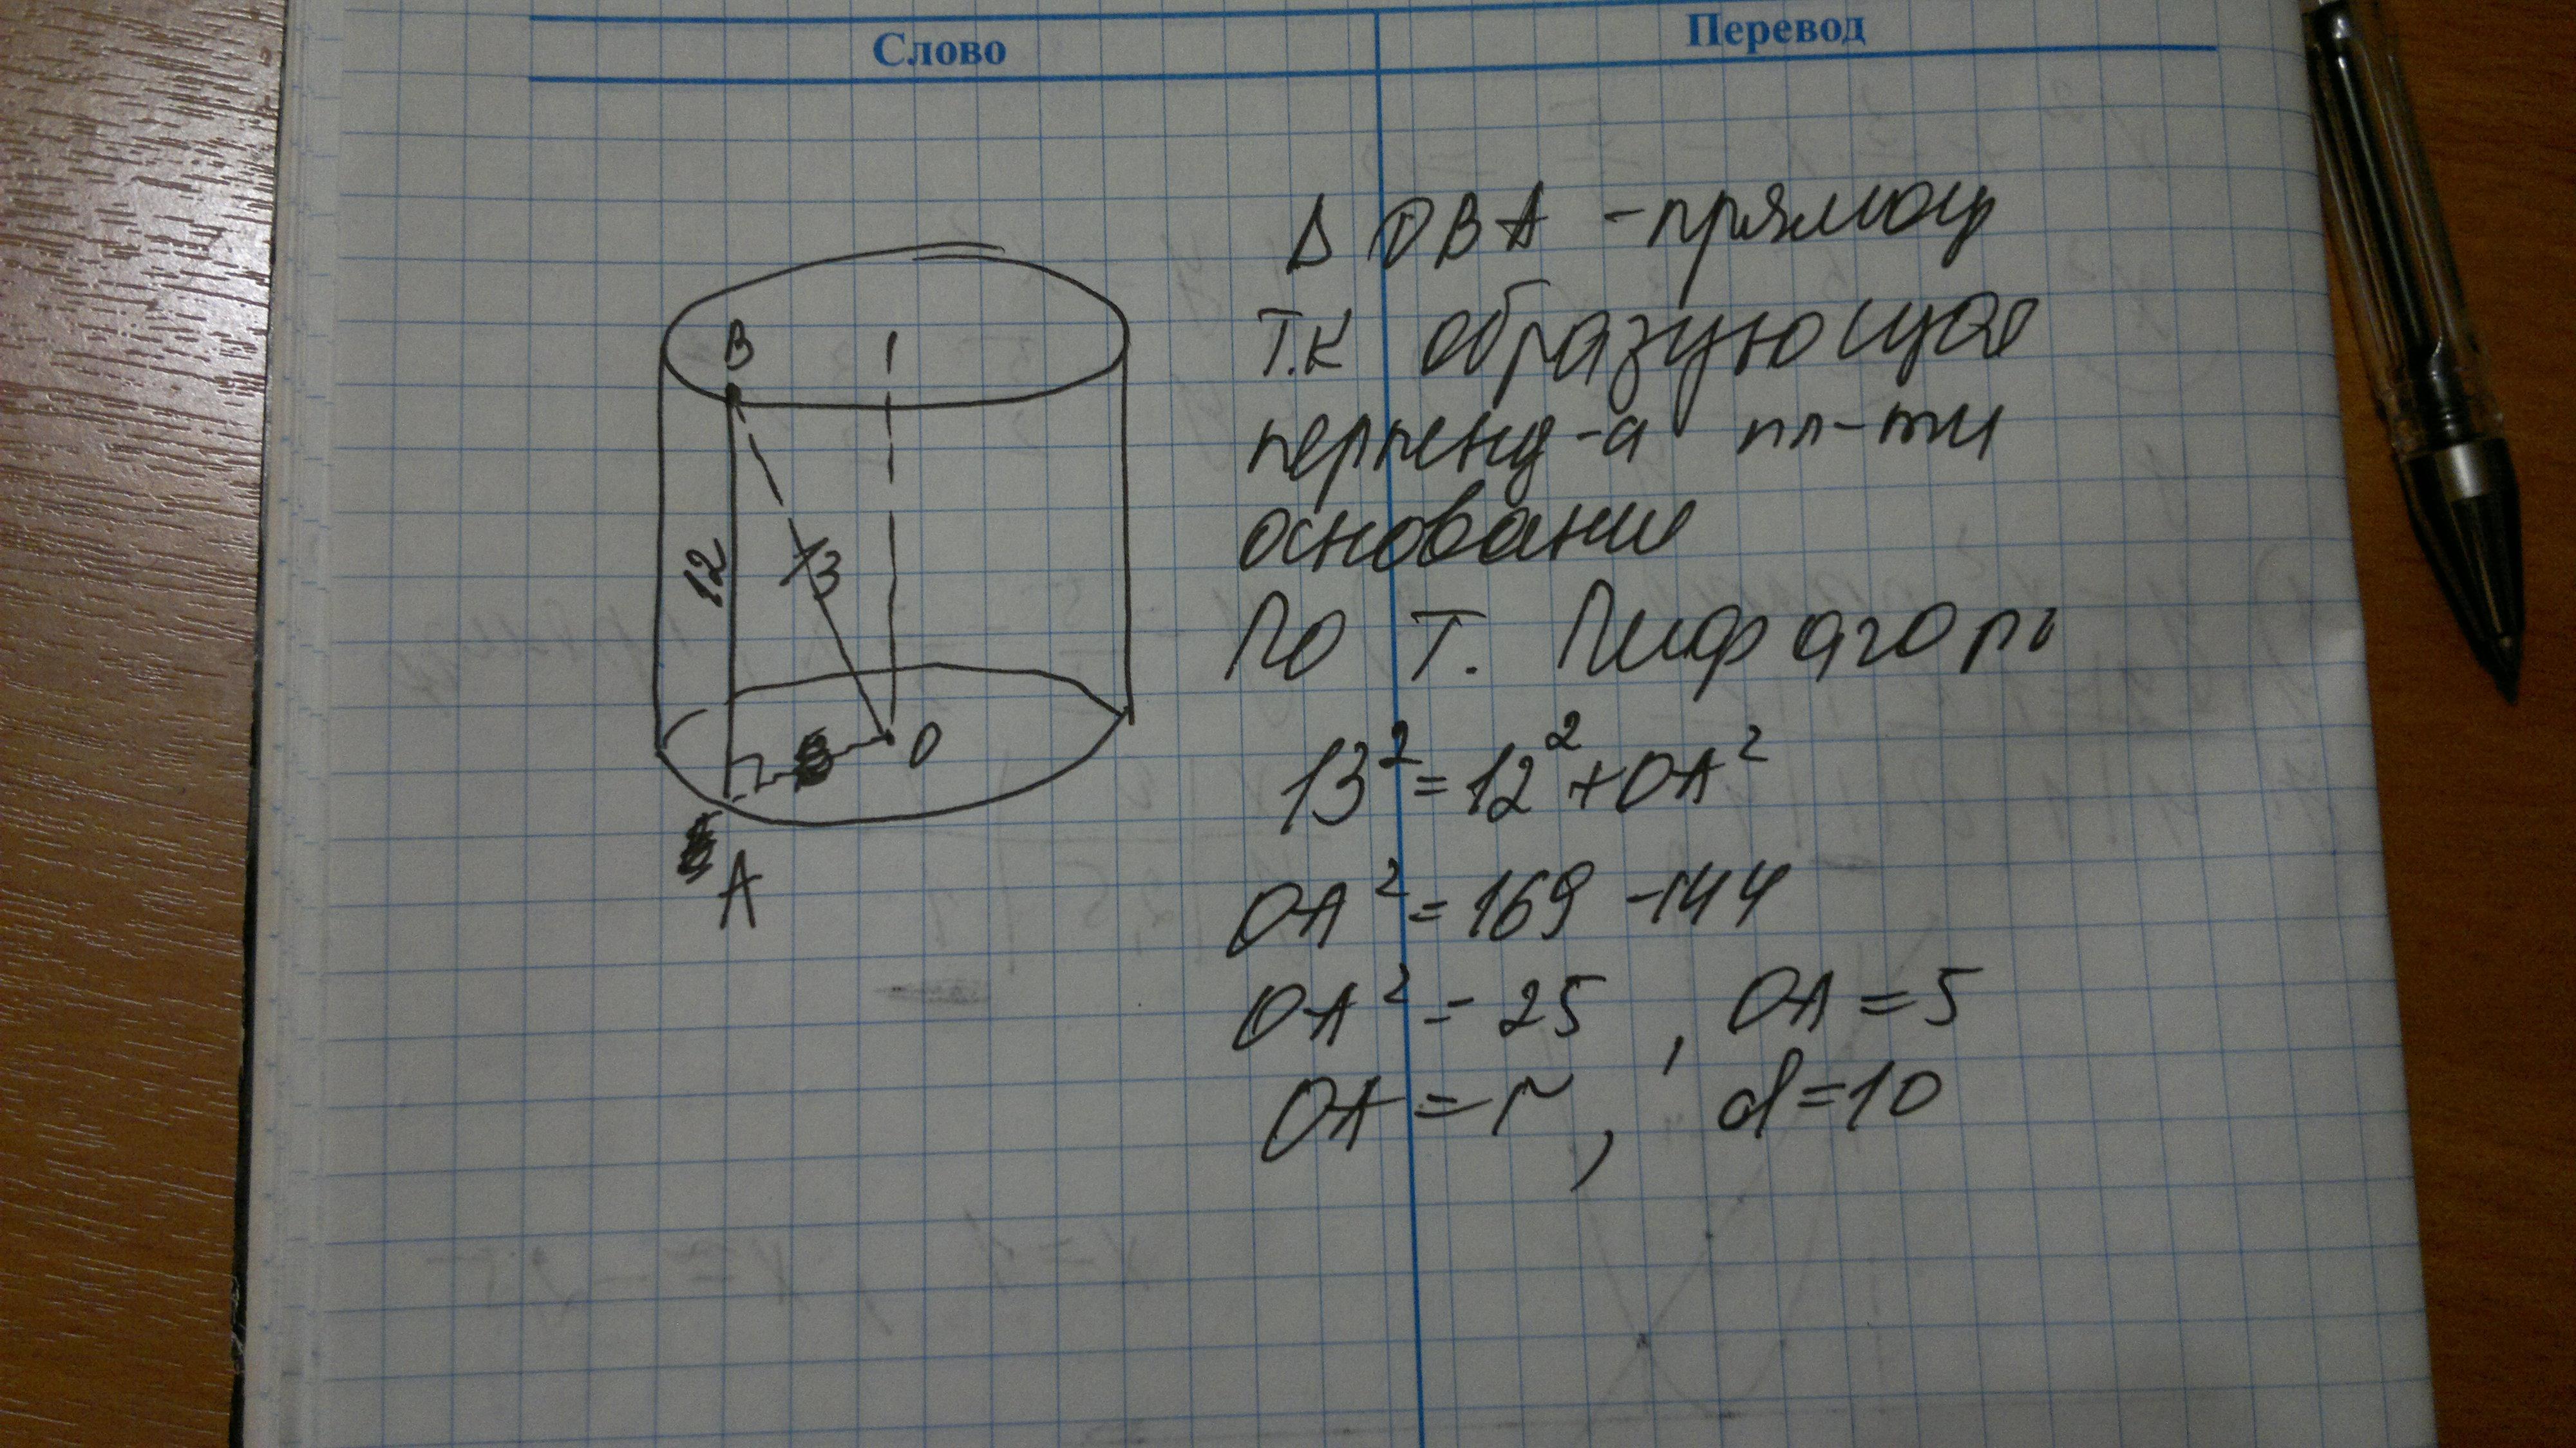 Слово
Перевод
В
12
13
О
А
Δ ОВА - прямоуг
т.к образующая
перпенд-а пл-ти
основания
По т. Пифагоры
13² = 12² + ОА²
ОА² = 169 - 144
ОА² = 25 , ОА = 5
ОА = r , d = 10